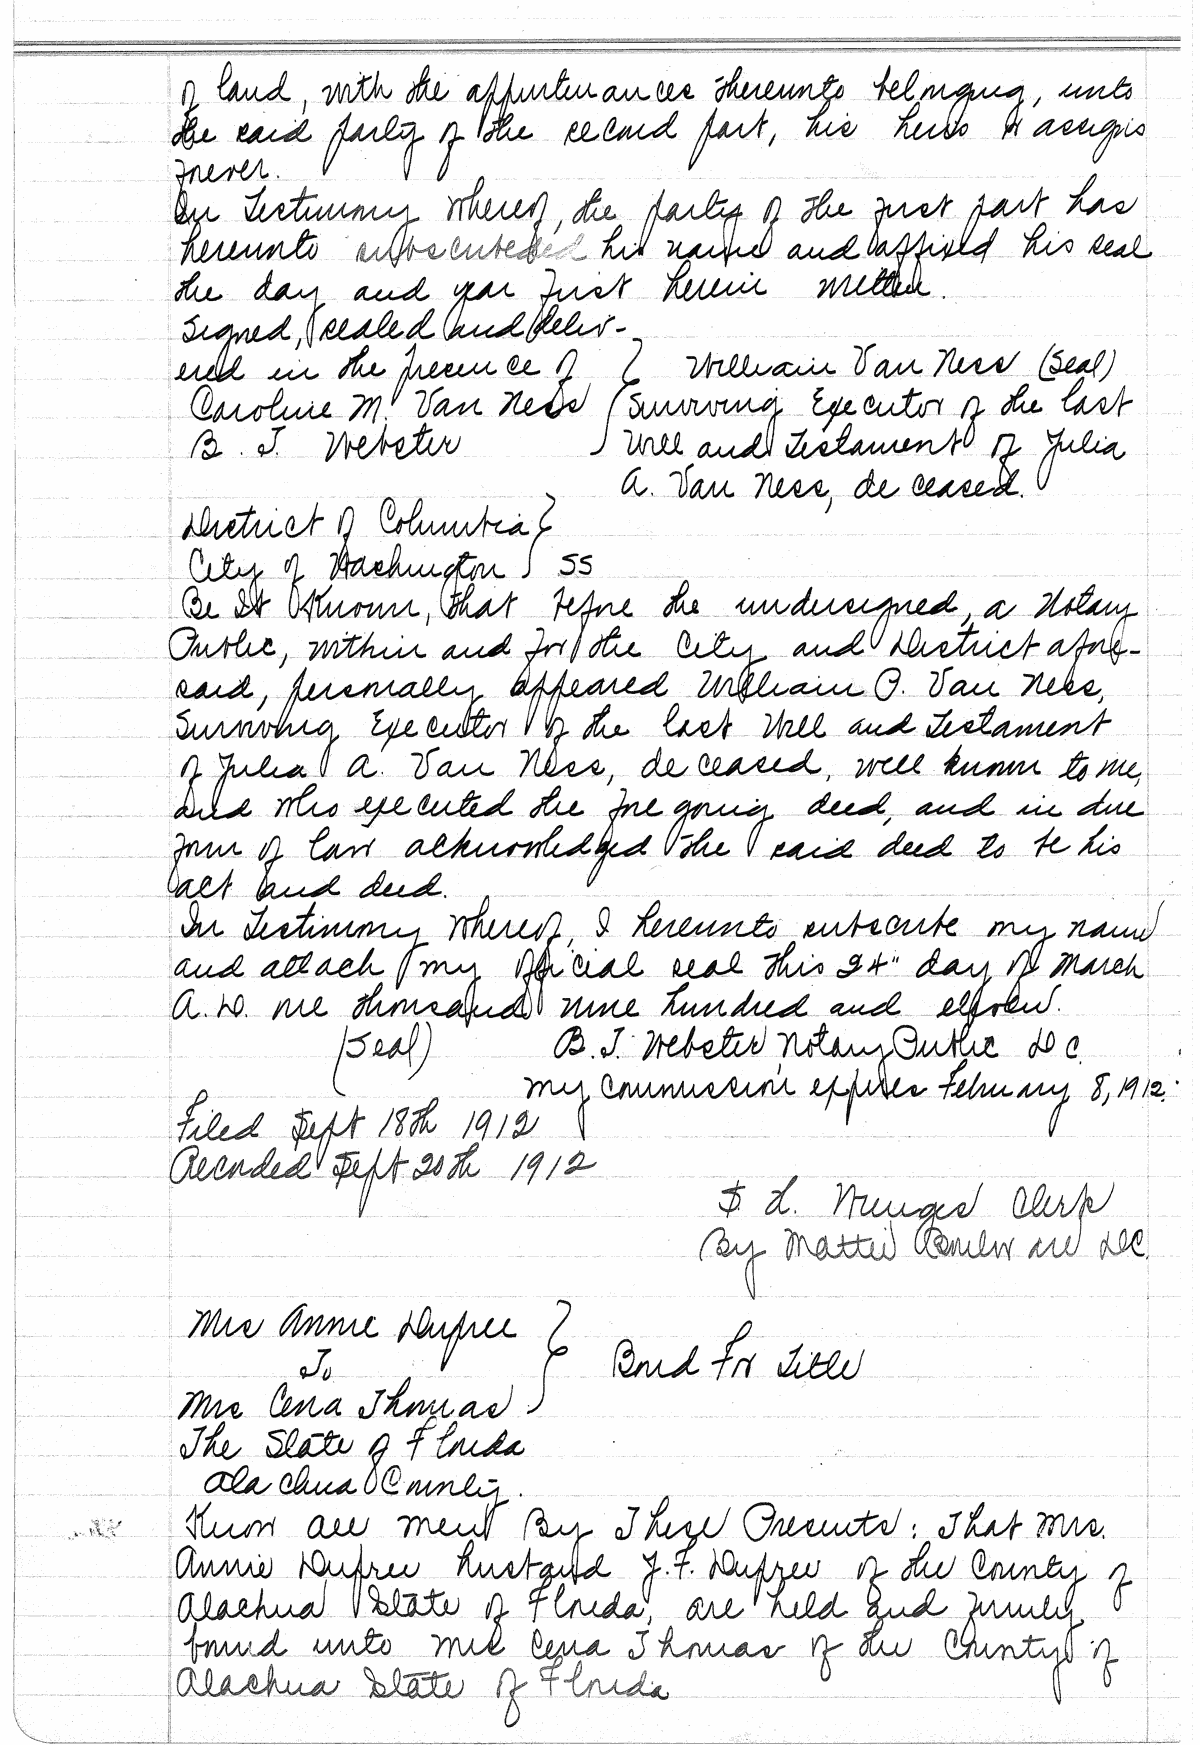 of land, with the appurtenances thereunto belonging, unto
the said party of the second part, his heirs or assigns
forever.
In Testimony Whereof, the party of the first part has
hereunto subscribed his name and affixed his seal
the day and year first herein written.
Signed, sealed and deliv-
ered in the presence of } William Van Ness (Seal)
Caroline M. Van Ness Surviving Executor of the last
B. T. Webster Will and Testament of Julia
A. Van Ness, deceased.
District of Columbia }
City of Washington } SS
Be It Known, that before the undersigned, a Notary
Public, within and for the City and District afore-
said, personally appeared William P. Van Ness,
Surviving Executor of the last Will and Testament
of Julia A. Van Ness, deceased, well known to me,
and who executed the foregoing deed, and in due
form of law acknowledged the said deed to be his
act and deed.
In Testimony Whereof, I hereunto subscribe my name
and attach my official seal this 24" day of March
A.D. one thousand nine hundred and eleven.
(Seal) B. T. Webster Notary Public D C
My Commission expires February 8, 1912.
Filed Sept 18th 1912
Recorded Sept 20th 1912
S. H. Wienges Clerk
By Mattie DC.
Mrs Annie Dupree }
To } Bond For Title
Mrs Cena Thomas }
The State of Florida
Alachua County.
Know all men By These Presents: That Mrs.
Annie Dupree husband J. F. Dupree of the County of
Alachua State of Florida, are held and firmly
bound unto Mrs Cena Thomas of the County of
Alachua State of Florida